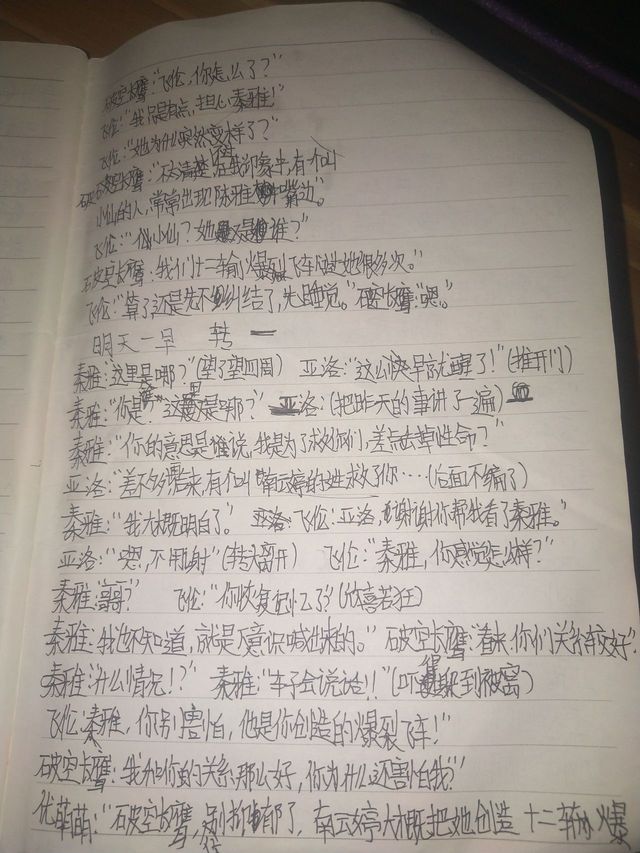 石破空长鹰:“飞伦,你怎么了?”
飞伦:“我只是有点,担心秦雅!”
飞伦:“她为什么突然变样了?”
石破空长鹰:“不太清楚,在我印象中,有个叫
小仙的人,常常出现陈雅嘴边。”
飞伦:“小仙?她是谁?”
石破空长鹰:我们十二辆爆裂飞车 她很多次。”
飞伦:“算了还是先不纠结了,先睡觉。”石破空长鹰“嗯。”
明天一早 转
秦雅:“这里是哪?”(望了望四周) 亚洛:“这么快早就醒了!”(推开门)
秦雅:“你是?这是哪?” 亚洛:(把昨天的事讲了一遍)
秦雅:“你的意思是说,我是为了求救你们,差点丢掉性命?”
亚洛:“差不多,后来,有个叫南云婷的女生救了你…(后面不编了)
秦雅:“我大概明白了。” 飞伦:“亚洛,谢谢你帮我看了秦雅。”
亚洛:“嗯,不用谢”(转头离开) 飞伦:“秦雅,你感觉怎样?”
秦雅:“哥哥?” 飞伦:“你恢复记忆了?(欣喜若狂)
秦雅:我也不知道,就是反意识喊出来的。” 石破空长鹰“看来,你们关系有交好”.
秦雅:“什么情况!?” 秦雅:“车子会说话!!”(吓得躲到被窝)
飞伦:秦雅,你别害怕,他是你创造的爆裂飞车!”
石破空长鹰:我和你的关系那么好,你为什么还害怕我?”
优萌萌:“石破空长鹰,别抑郁了,南云婷大概把她创造十二辆爆